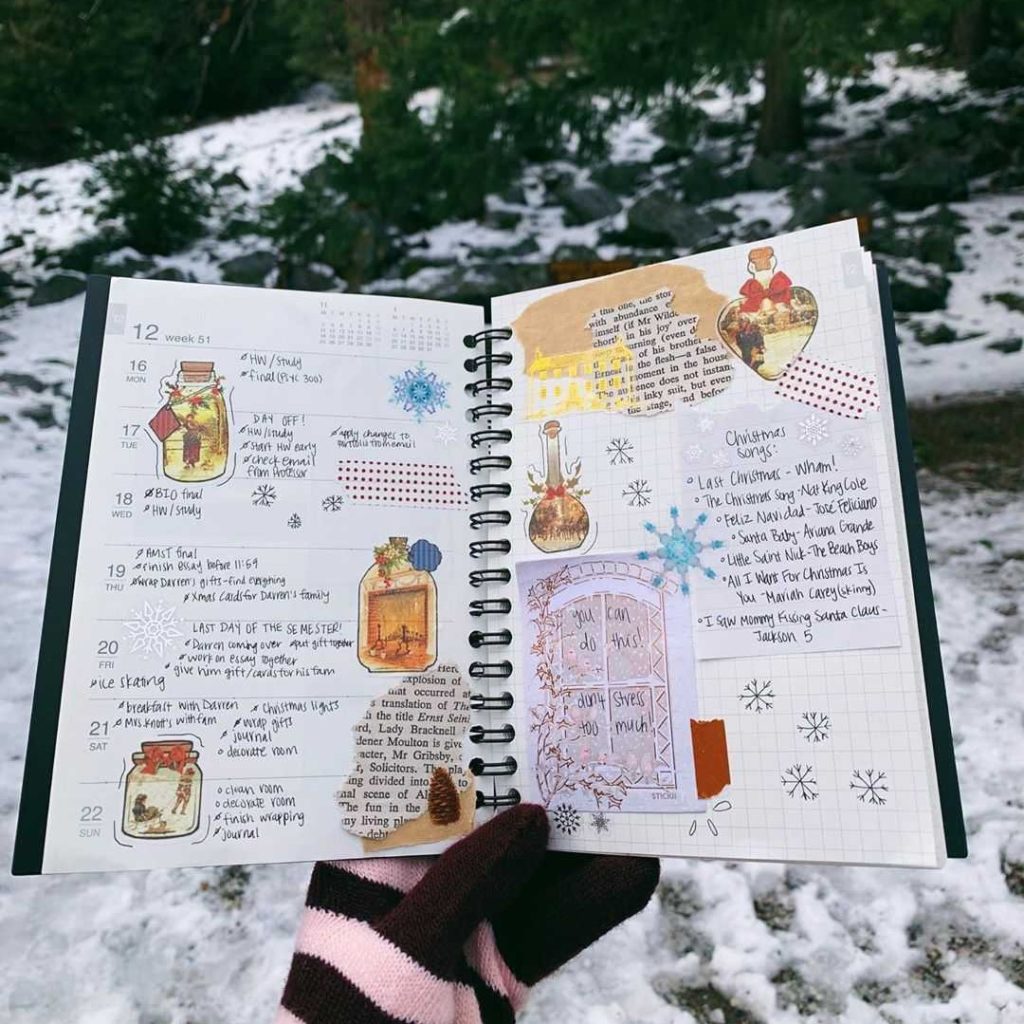 12 week 51
16
MON
HW/study
final (PSYC 300)
17
TUE
DAY OFF!
HW/study
start HW early
check email
from professor
apply changes to
portfolio from email
18
WED
BIO final
HW/study
19
THU
AMST final
finish essay before 11:59
wrap Darren's gifts-find everything
Xmas cards for Darren's family
20
FRI
LAST DAY OF THE SEMESTER!
Darren coming over
put gift together
work on essay together
give him gift/cards for his fam
ice skating
21
SAT
breakfast with Darren
Christmas lights
Mrs. Knott's with fam
wrap gifts
journal
decorate room
22
SUN
clean room
decorate room
finish wrapping
journal
explosion of
that occurred at
translation of The
the title Ernest Sein
rd, Lady Bracknell
dener Moulton is give
acter, Mr Gribsby,
r, Solicitors. The pla
ing divided into
nal scene of
The fun in the
ny living
debt
this one, the stor
with abundance
himself (if Mr Wild
chort), in his joy over
urning (even d
of his brother
Ernest in the flesh—a false
moment in the house
The audience does not instan
inky suit, but even
the stage, and before
Christmas
Songs
Last Christmas - Wham!
The Christmas Song - Nat King Cole
Feliz Navidad - José Feliciano
Santa Baby - Ariana Grande
Little Saint Nick - The Beach Boys
All I Want For Christmas Is
You - Mariah Carey (skinny)
I Saw Mommy Kissing Santa Claus -
Jackson 5
you can
do this!
don't stress
too much
STICKII